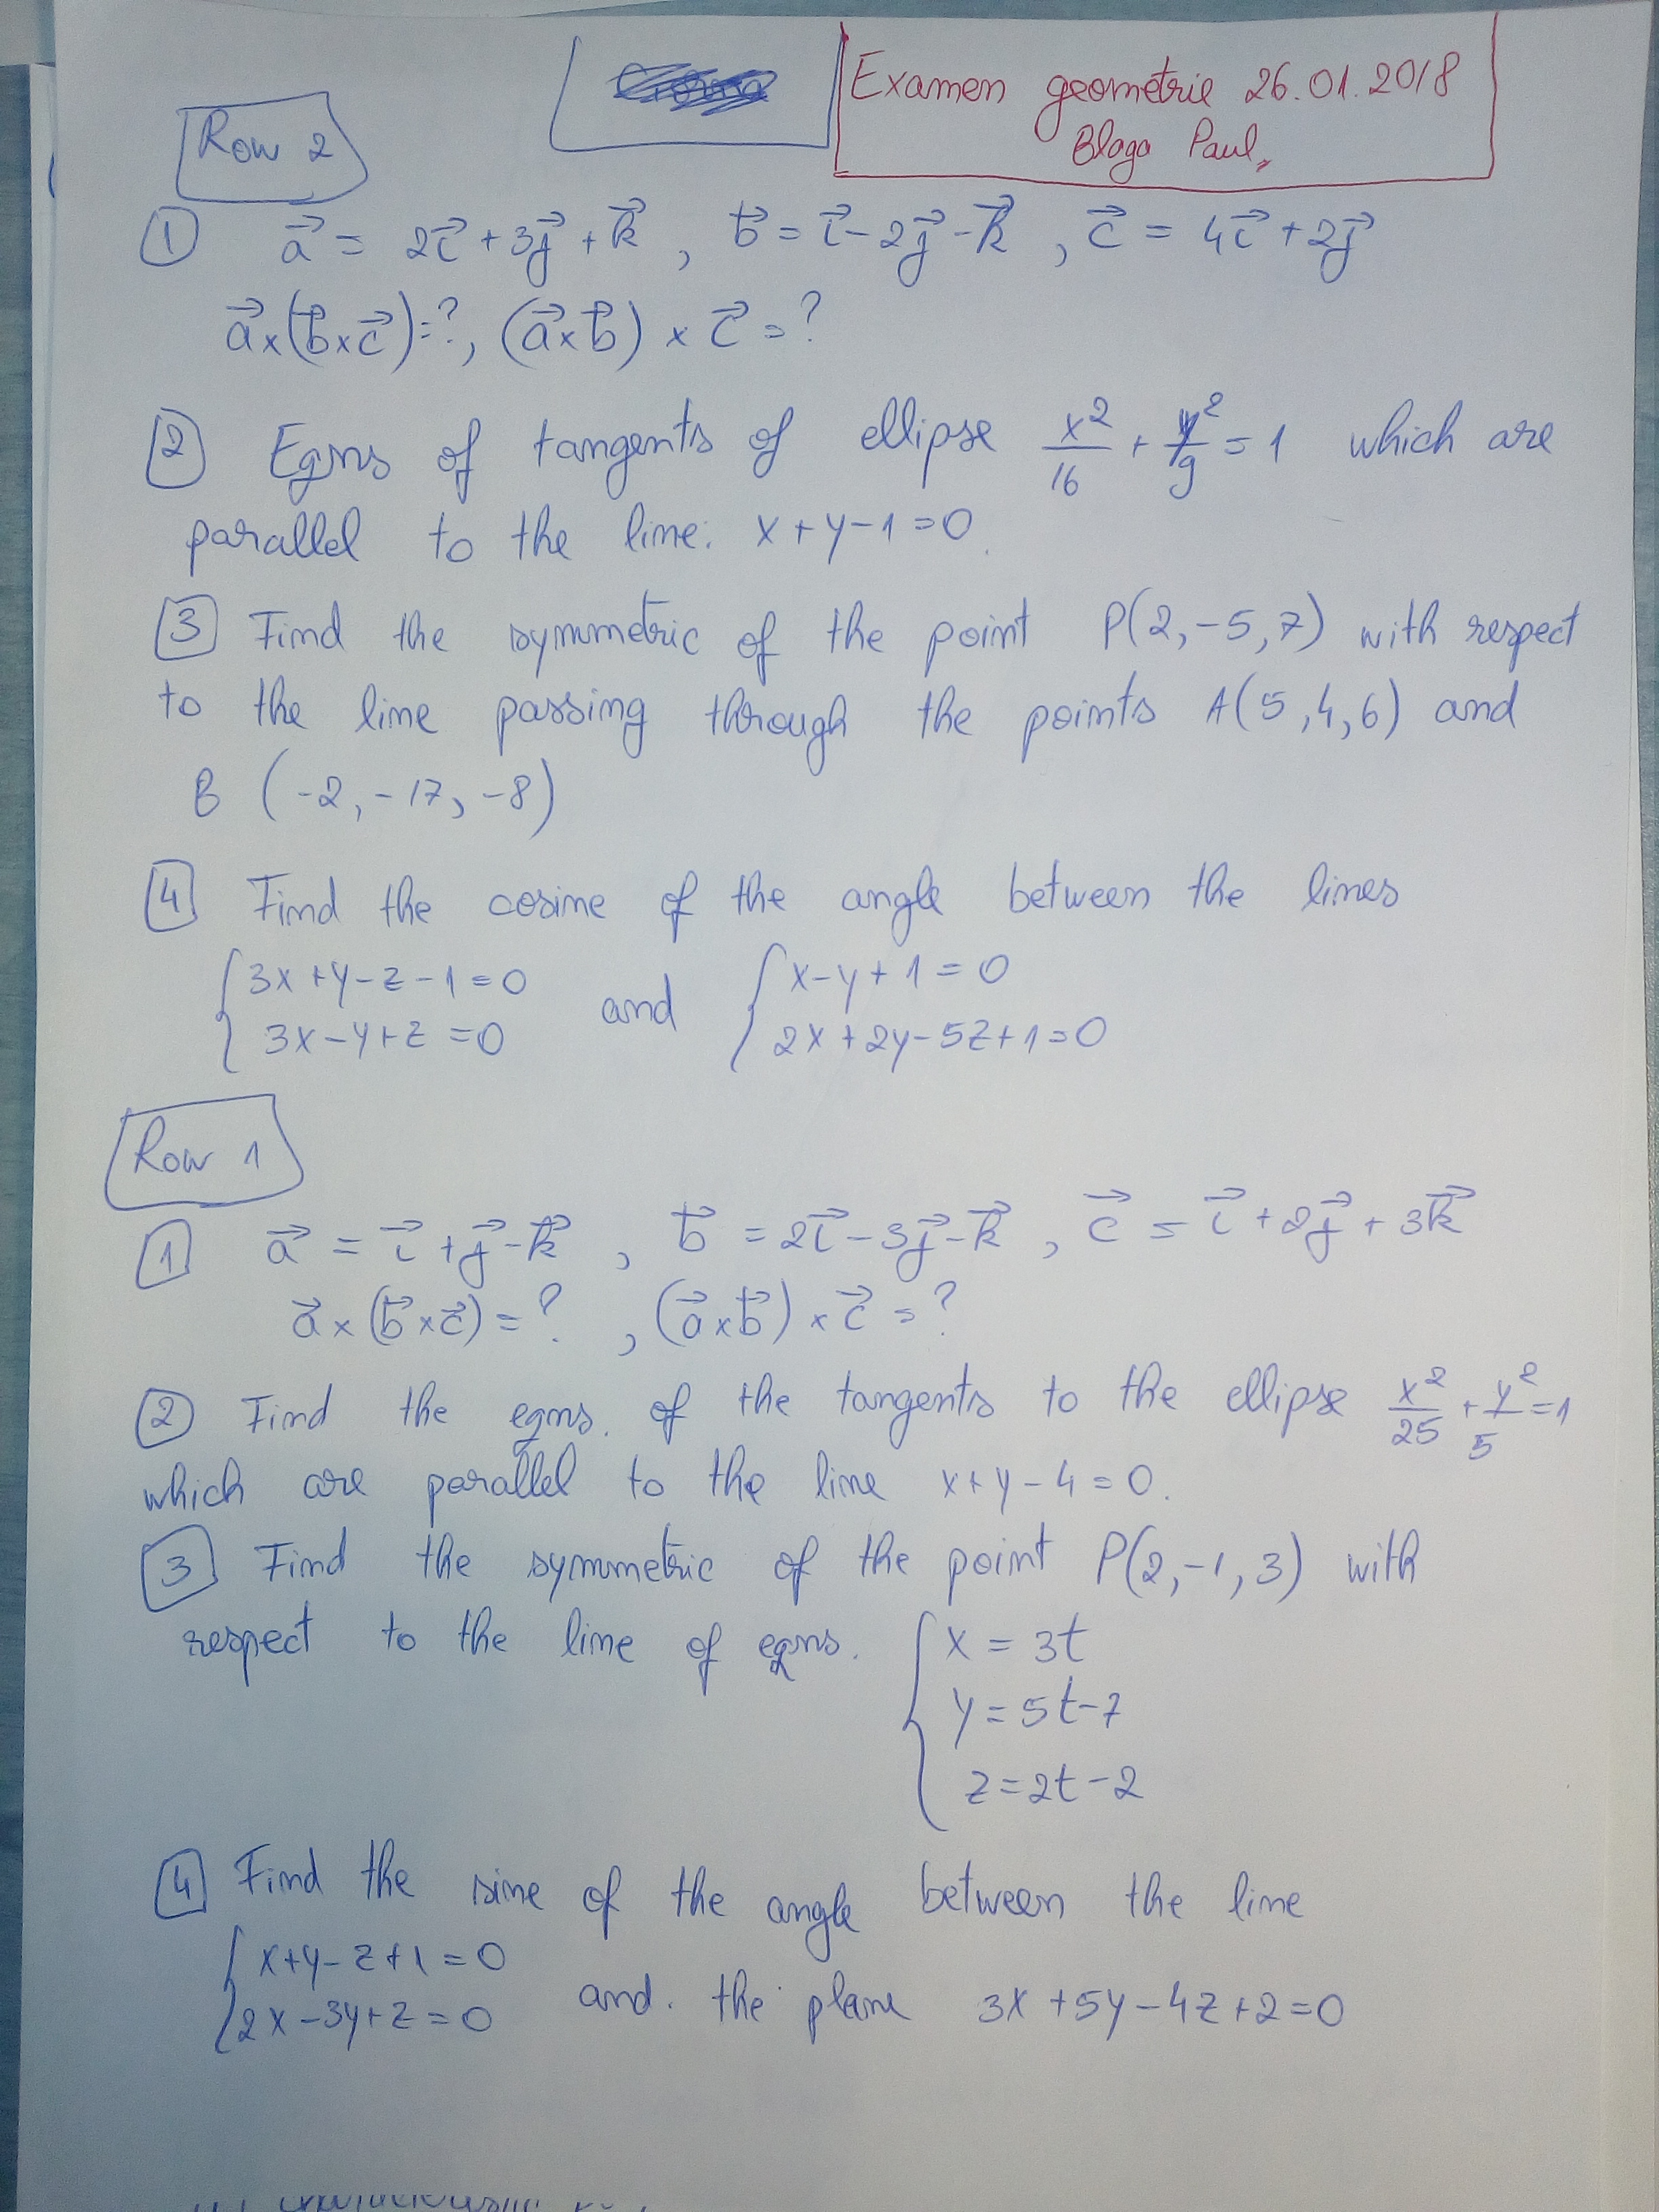 Examen geometrie 26.01.2018
Blaga Paul,
Row 2
① a⃗ = 2i⃗ + 3j⃗ + k⃗ , b⃗ = i⃗ - 2j⃗ - k⃗ , c⃗ = 4i⃗ + 2j⃗
a⃗ x (b⃗ x c⃗) = ?, (a⃗ x b⃗) x c⃗ = ?
2 Eqns of tangents of ellipse x²/16 + y²/9 = 1 which are
parallel to the line: x + y - 1 = 0.
3 Find the symmetric of the point P(2, -5, 7) with respect
to the line passing through the points A(5, 4, 6) and
B (-2, -17, -8)
4 Find the cosine of the angle between the lines
{ 3x + y - z - 1 = 0 and { x - y + 1 = 0
3x - y + z = 0 2x + 2y - 5z + 1 = 0
Row 1
1 a⃗ = i⃗ + j⃗ - k⃗ , b⃗ = 2i⃗ - 3j⃗ - k⃗ , c⃗ = i⃗ + 2j⃗ + 3k⃗
a⃗ x (b⃗ x c⃗) = ? , (a⃗ x b⃗) x c⃗ = ?
② Find the eqns. of the tangents to the ellipse x²/25 + y²/5 = 1
which are parallel to the line x + y - 4 = 0.
3 Find the symmetric of the point P(2, -1, 3) with
respect to the line of eqns. { x = 3t
y = 5t - 7
z = 2t - 2
4 Find the sine of the angle between the line
{ x + y - z + 1 = 0
2x - 3y + z = 0 and. the plane 3x + 5y - 4z + 2 = 0